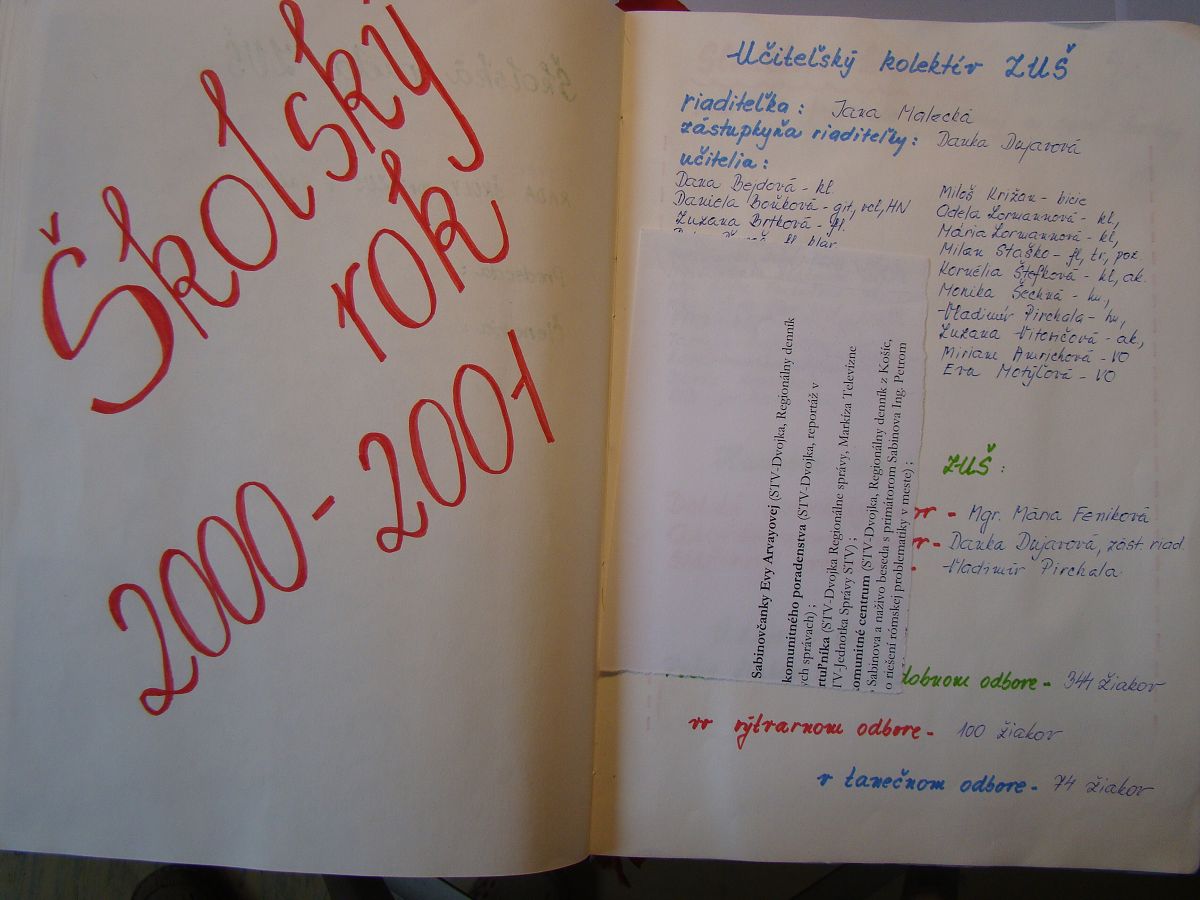 Školský
rok
2000-2001
Učiteľský kolektív ZUŠ
riaditeľka: Jana Malecká
zástupkyňa riaditeľky: Danka Dujavová
učitelia:
Dana Bejdová - kl
Daniela Boňková - git, vcl, HN
Zuzana Brtková - fl.
Miloš Križan - bicie
Odela Lormannová - kl,
Mária Lormannová - kl,
Milan Staško - fl, tr, poz
Kornélia Štefková - kl, ak.
Monika Šechná - hu,
Vladimír Pirchala - hu,
Zuzana Vitovičová - ak,
Miriam Amrichová - VO
Eva Motýľová - VO
ZUŠ:
- Mgr. Mária Feníková
- Danka Dujavová, zást. riad.
- Vladimír Pirchala
dobnom odbore - 344 žiakov
vo výtvarnom odbore - 100 žiakov
v tanečnom odbore - 74 žiakov
Sabinovčanky Evy Arvayovej (STV-Dvojka, Regionálny denník
komunitného poradenstva (STV-Dvojka, reportáž v
ych správach) ;
rtuľníka (STV-Dvojka Regionálne správy, Markíza Televízne
TV-Jednotka Správy STV) ;
omunitné centrum (STV-Dvojka, Regionálny denník z Košíc,
Sabinova a naživo beseda s primátorom Sabinova Ing. Petrom
o riešení rómskej problematiky v meste) ;